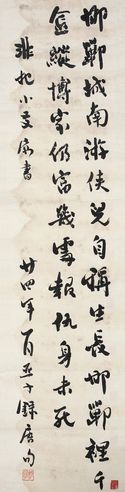 邯鄲城南游俠兒自稱生長邯鄲裡千
金縱博家仍富幾處報仇身未死
小友屬書 廿四年 錄唐句